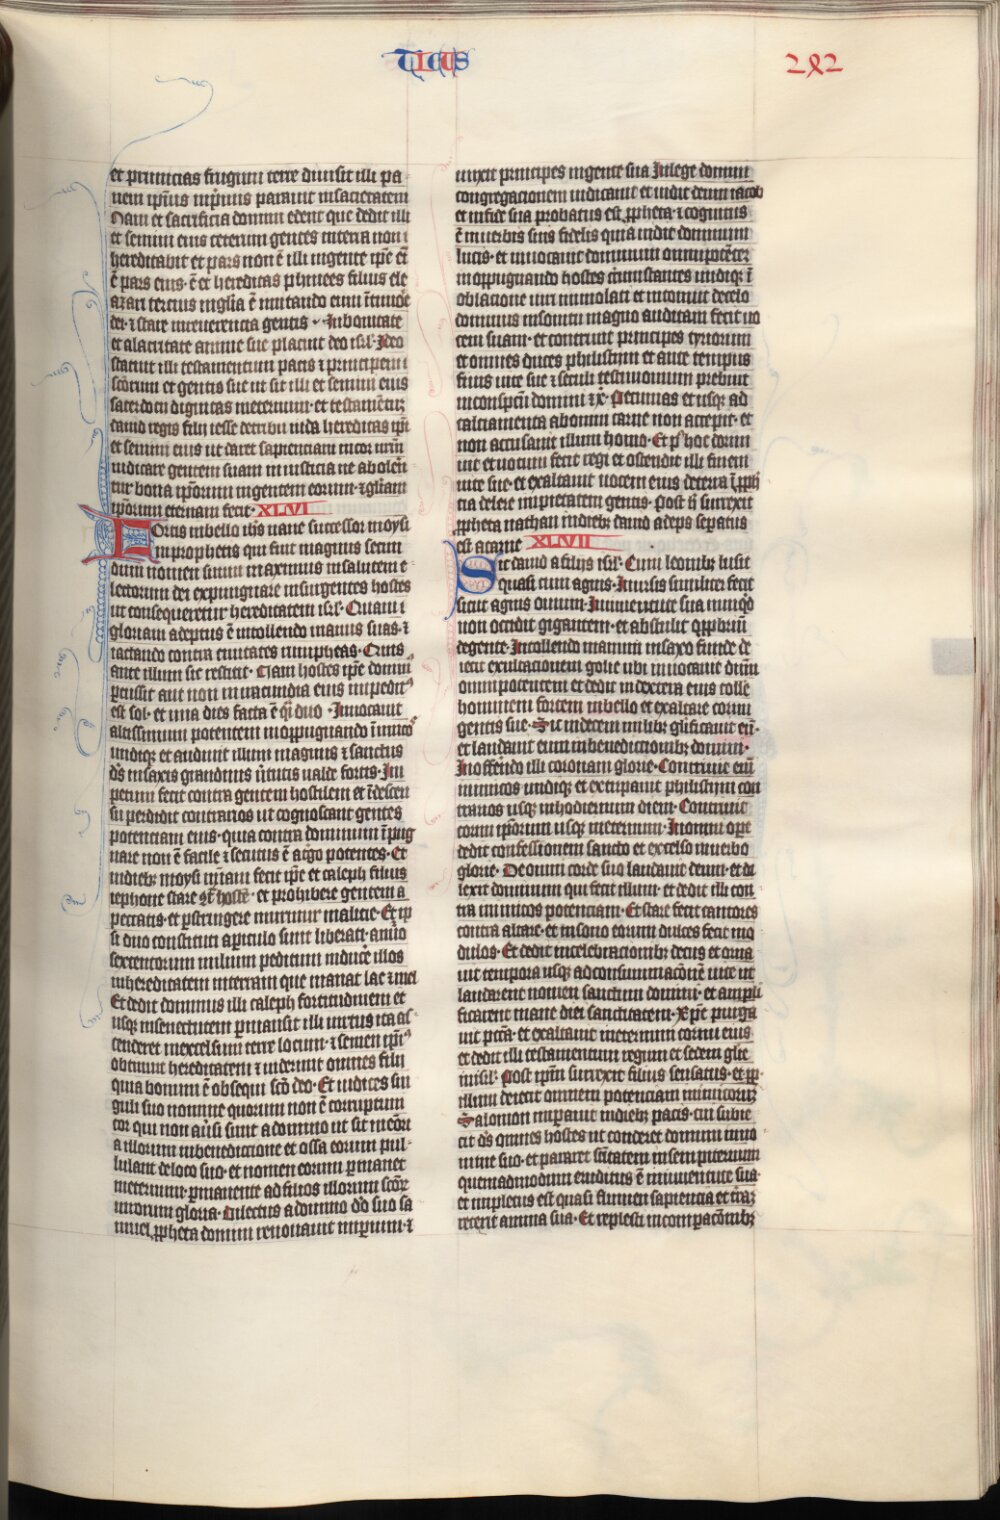 TICUS
282
et primicias frugum terre diuisit illi pa
nem ipsius inprimis parauit insacietatem
Nam et sacrificia domini edent que dedit illi
et semini eius ceterum gentes interra non
hereditabit et pars non ē illi ingente ipse eī
ē pars eius· ē et hereditas phinees filius ele
azari tercius inglīa ē imitando eum ītimoē
dei· ⁊ stare inreuerencia gentis Inbonitate
et alacritate anime sue placuit deo isrl· Ideo
statuit illi testamentum pacis ⁊ principem
scōrum et gentis sue ut sit illi et semini eius
sacerdocii dignitas ineternum· et testamētū
dauid regis filii iesse detribu iuda hereditas ipī
et semini eius ut daret sapienciam incor nrūm
iudicare gentem suam iniusticia ne abolen
tur bona ipōrum ingentem eorum· ⁊ glīam
ipōrum eternam fecit· XLVI
Fortis inbello ihs naue successor moysi
inprophetis qui fuit magnus secun
dum nomen suum maximus insalutem e
lectorum dei expungnare insurgentes hostes
ut consequeretur hereditatem isrl· Quam
gloriam adeptus ē intollendo manus suas· ⁊
iactando contra ciuitates rumpheas· Quis
ante illum sic restitit· Nam hostes ipse domin
percussit aut non iniracundia eius impeditꝰ
est sol· et una dies facta ē qi duo· Inuocauit
altissimum potentem inoppugnando inimicoˢ
undiqꝫ et audiuit illum magnus ⁊ sanctus
dˢ insaxis grandinis uirtutis ualde fortis· Im
petum fecit contra gentem hostilem et īdescen
su perdidit contrarios ut cognoscant gentes
potenciam eius· quia contra dominum īpug
nare non ē facile ⁊ secutus ē atergo potentes· Et
indiebꝫ moysi mīam fecit ipse et caleph filius
iephone stare gͣ hostē· et prohibere gentem a
peccatis· et perstringere murmur malicie· Et ip
si duo constituti apericulo sunt liberati· anūo
sexcentorum milium peditum inducē illos
inhereditatem interram que manat lac ⁊ mel
Et dedit dominus illi caleph fortitudinem et
usqꝫ insenectutem permansit illi uirtus ita as
cenderet inexcelsum terre locum· ⁊ semen ipīꝰ
obtinuit hereditatem ⁊ uiderunt omnes filii
quia bonum ē obsequi scō deo· Et iudices sin
guli suo nomine quorum non ē corruptum
cor qui non auersi sunt adomino ut sit meōri
a illorum inbenedictione et ossa eorum pul
lulant deloco suo· et nomen eorum permanet
ineternum· permanente adfilios illorum scōr
uirorum gloria· Dilectus adomino dō suo sa
muel ꝓpheta domini renouauit imperium· ⁊
unxit principes ingente sua Inlege domini
congregacionem iudicauit et uidit deum iacob
et infide sua probatus est ꝓpheta· ⁊ cognitus
ē inuerbis suis fidelis quia uidit dominum
lucis· et inuocauit dominum omnipotētem
inoppugnando hostes circumstantes undiqꝫ ī
oblacione uiri inmolati et intonuit decelo
dominus insonitu magno auditam fecit uo
cem suam· et contriuit principes tyriorum
et omnes duces philistiim et ante tempus
finis uite sue ⁊ seculi testimonium prebuit
inconspcū domini ⁊ x· Pecunias et usqꝫ ad
calciamenta abomni carne non accepit· et
non accusauit illum homo· Et pˢ hoc dormi
uit et notum fecit regi et ostendit illi finem
uite sue· et exaltauit uocem eius deterra ī ꝓph
cia delere impietatem gentis· Post h surrexit
ꝓpheta nathan indiebꝫ dauid adeps separatus
est acarne XLVII
Sic dauid afiliis isrl· Cum leonibꝫ lusit
quasi cum agnis· Inursis similiter fecit
sicut agnis ouium· Iniuuentute sua nunqͥd
non occidit gigantem· et abstulit opprbriū
degente· Intollendo manum insaxo funde de
iecit exultacionem golie ubi inuocauit dnūm
omnipotentem et dedit indextera eius tolle
hominem fortem inbello et exaltare cornu
gentis sue· Sic indecem milibꝫ glificauit eū·
et laudauit eum inbenedictionibꝫ domini·
Inofferendo illi coronam glorie· Contriuit enī
inimicos undiqꝫ et extirpauit philistiim con
trarios usqꝫ inhodiernum diem· Contriuit
cornu ipōrum usqꝫ ineternum· Inomni ope
dedit confessionem sancto et excelso inuerbo
glorie· De omni corde suo laudauit deum· et di
lexit dominum qui fecit illum· et dedit illi con
tra inimicos potenciam· Et stare fecit cantores
contra altare· et insono eorum dulces fecit mo
dulos· Et dedit incelebracionibꝫ decus et orna
uit tempora usqꝫ adconsummacōnē uite ut
laudarent nomen sanctum domini· et ampli
ficarent mane diei sanctitatem· Xpē purga
uit pctā· et exaltauit ineternum cornu eius
et dedit illi testamentum regum et sedem glīe
inisrl· Post ipm surrexit filius sensatus· et ꝓp
illum deiecit omnem potenciam inimicorū
Salomon imperauit indiebꝫ pacis· cui subie
cit dˢ omnes hostes ut conderet domum inno
mine suo· et pararet scitatem insempiternum
quemadmodum eruditus ē iniuuentute sua·
et impletus est quasi flumen sapiencia et terrā
retexit anima sua· Et replesti incomparacōnibꝫ